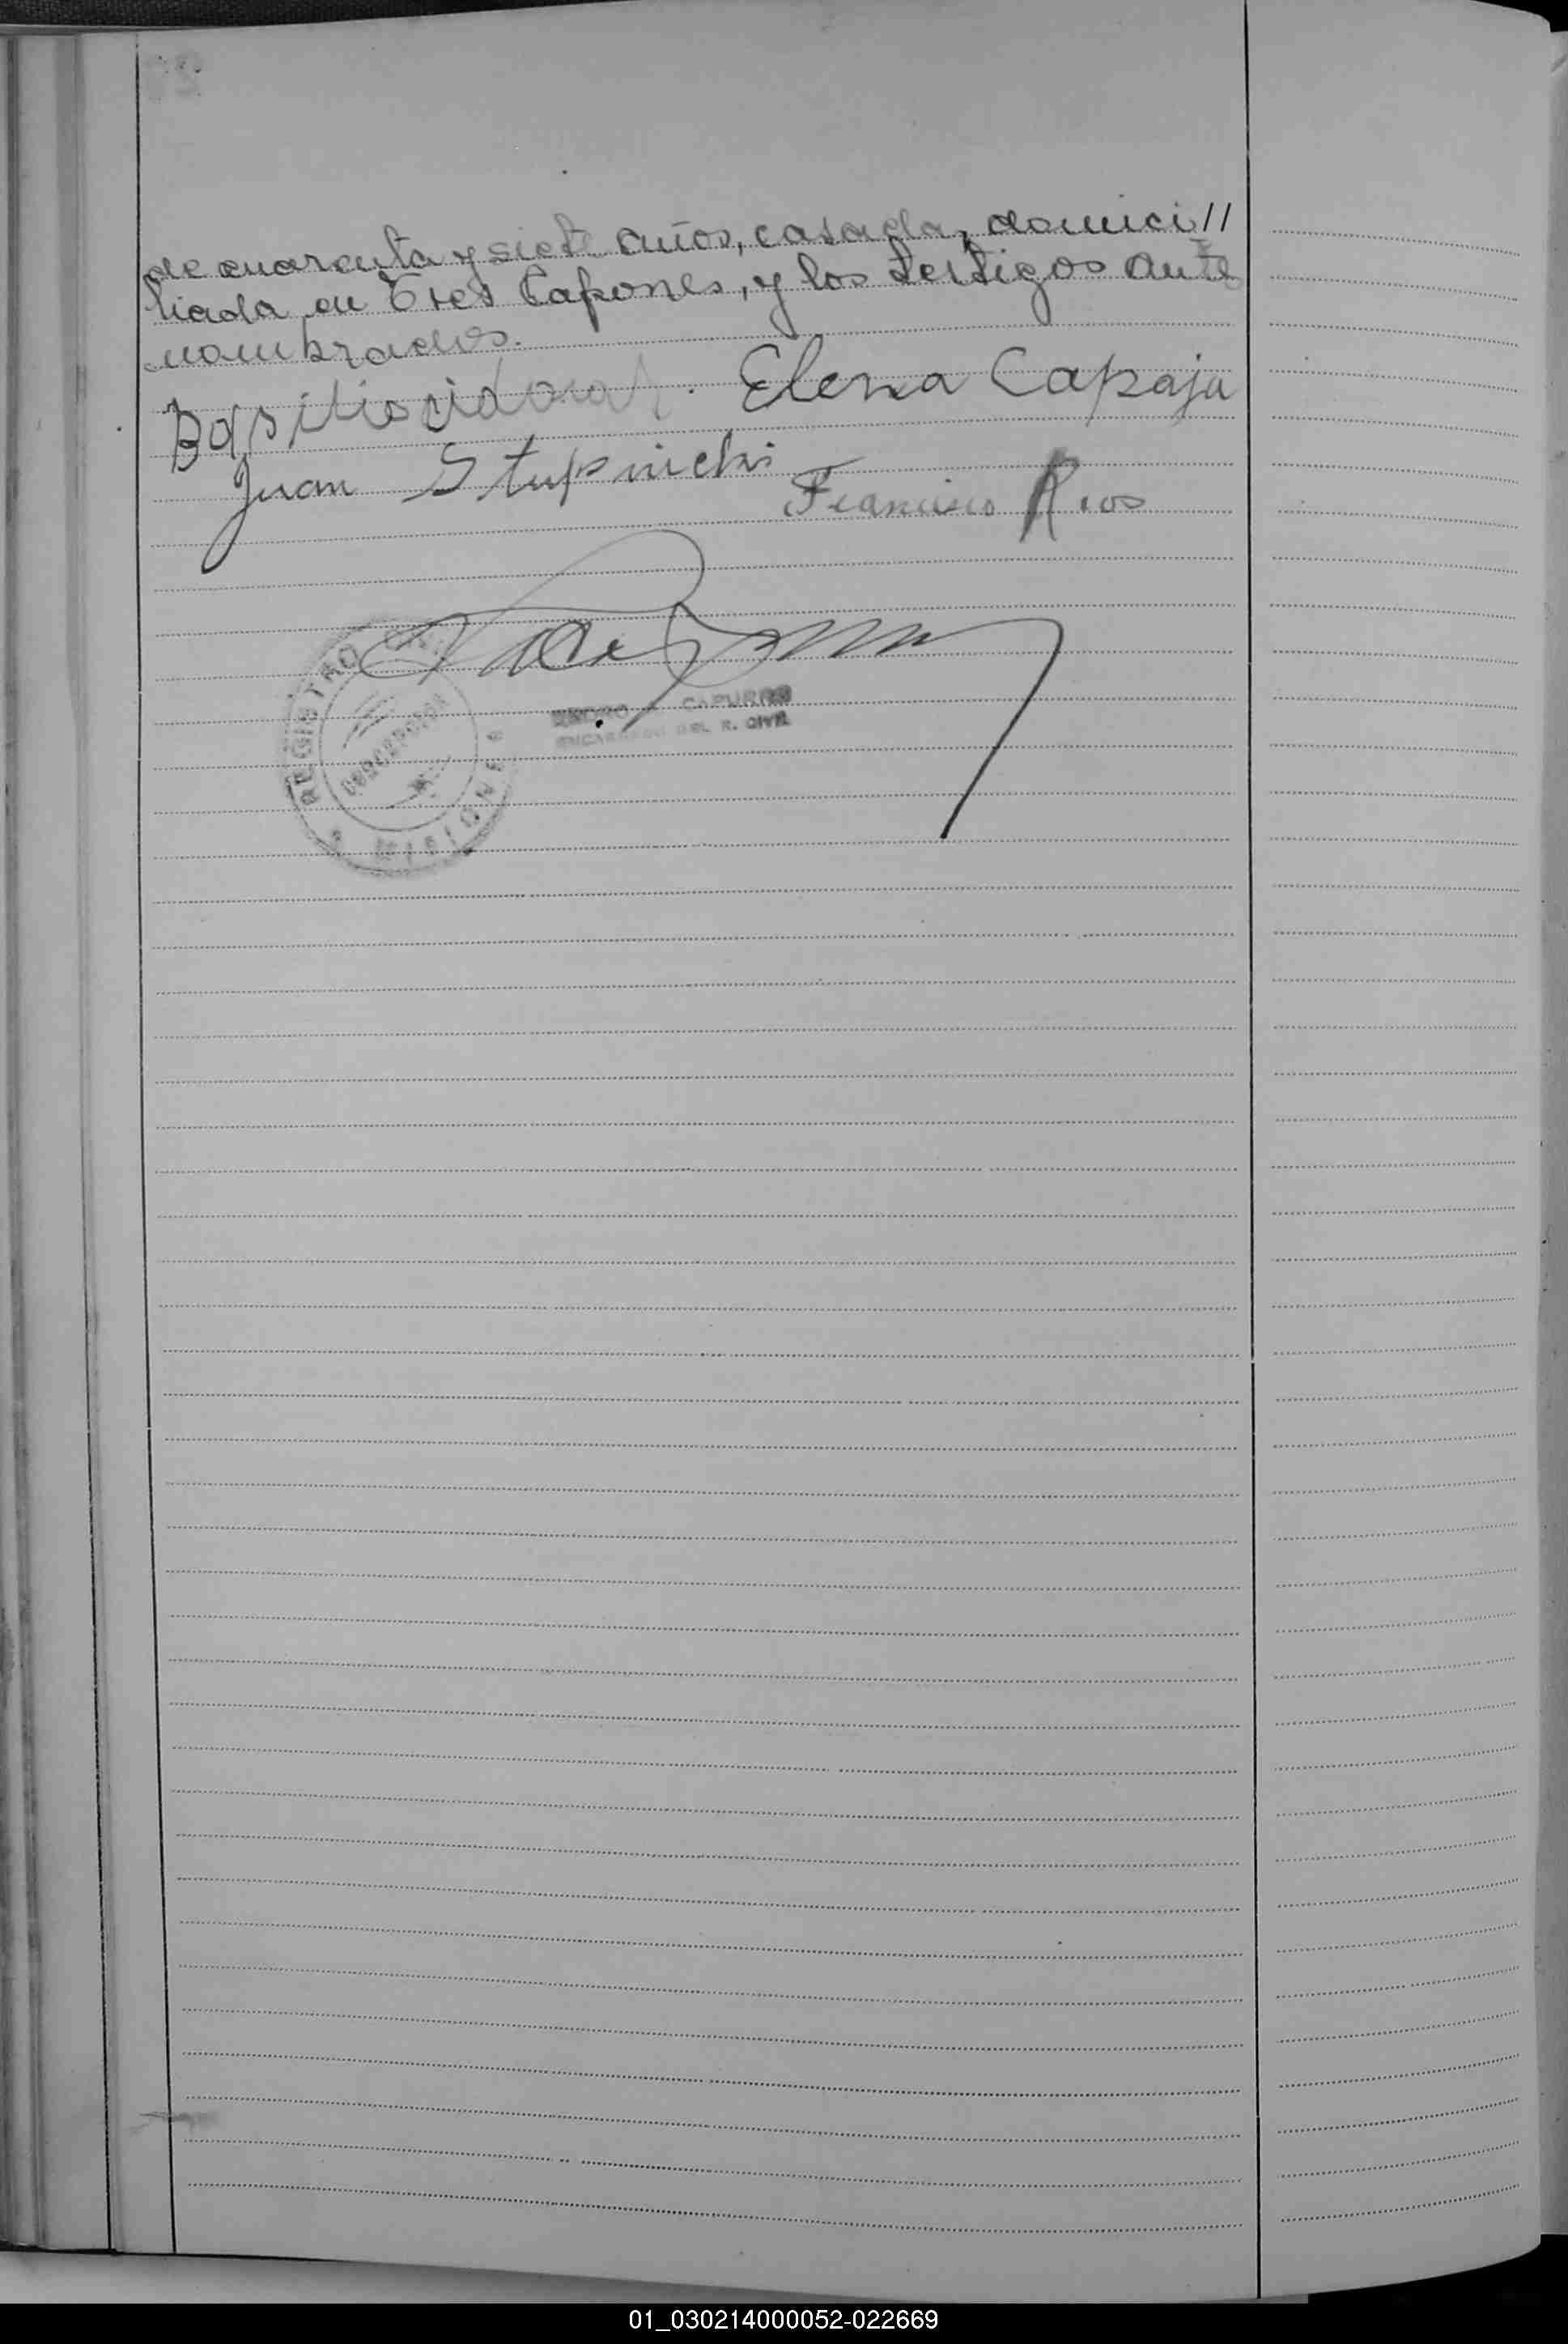 de cuarenta y siete años, casada, domici//
liada en Tres Capones, y los testigos ante
nombrados.
Basilio
Elena Capaja
Juan Stupnicki
Francisco Rios
REGISTRO
MISIONES
CAPURRO
ENCARGADO DEL R. CIVIL
01_030214000052-022669